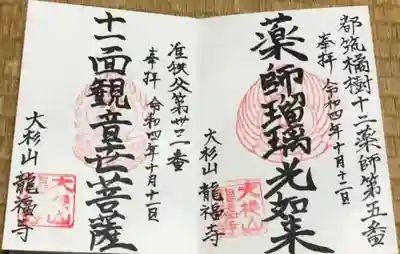 都筑橘樹十二薬師第五番
奉拝 令和四年十月十二日
薬師瑠璃光如来
大杉山 龍福寺
准秩父第廿二番
奉拝 令和四年十月十二日
十一面観音世菩薩
大杉山 龍福寺
大杉山
大杉山